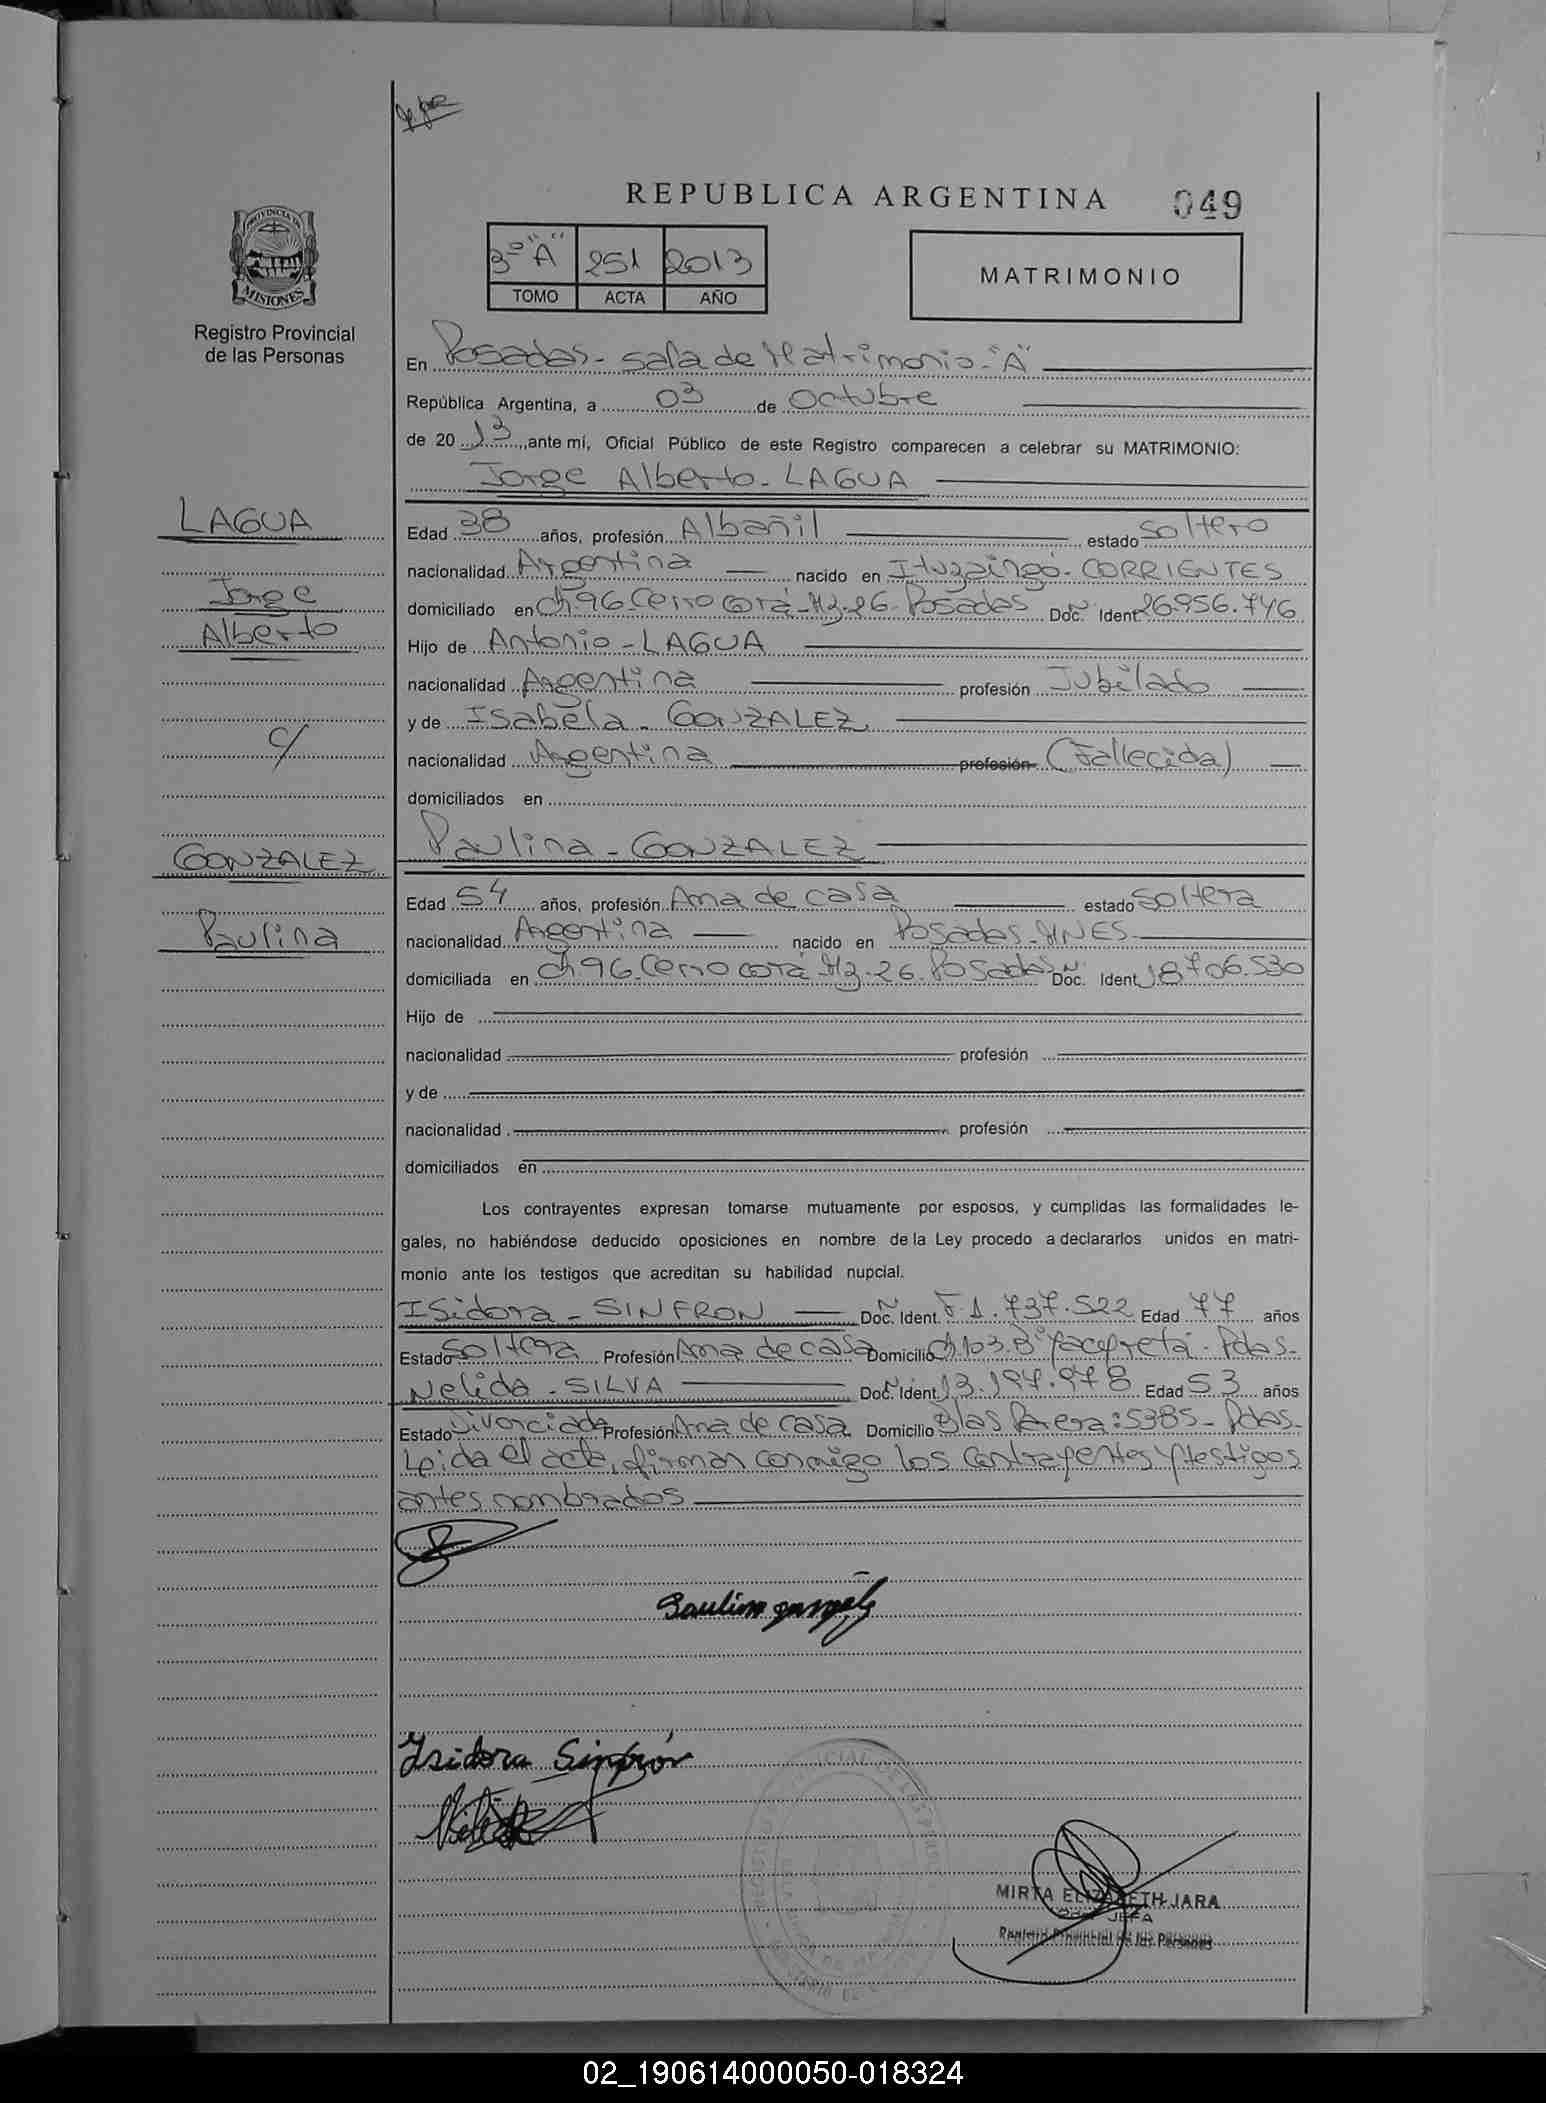 REPUBLICA ARGENTINA 049
PROVINCIA DE
MISIONES
Registro Provincial
de las Personas
3º "A" 251 2013
TOMO ACTA AÑO
MATRIMONIO
En Posadas - Sala de Matrimonio - "A"
República Argentina, a 03 de Octubre
de 20 13, ante mí, Oficial Público de este Registro comparecen a celebrar su MATRIMONIO:
Jorge Alberto - LAGUA
LAGUA
Jorge
Alberto
c/
GONZALEZ
Paulina
Edad 38 años, profesión Albañil estado Soltero
nacionalidad Argentina nacido en Ituzaingó - CORRIENTES
domiciliado en Ch. 96 - Cerro corá - Mz. 26 - Posadas Doc. Ident 26.956.746
Hijo de Antonio - LAGUA
nacionalidad Argentina profesión Jubilado
y de Isabela - GONZALEZ
nacionalidad Argentina profesión (Fallecida)
domiciliados en
Paulina - GONZALEZ
Edad 54 años, profesión Ama de casa estado Soltera
nacionalidad Argentina nacido en Posadas - MNES -
domiciliada en Ch. 96 - Cerro corá Mz. 26 - Posadas Doc. Ident 18.706.530
Hijo de
nacionalidad profesión
y de
nacionalidad profesión
domiciliados en
Los contrayentes expresan tomarse mutuamente por esposos, y cumplidas las formalidades le-
gales, no habiéndose deducido oposiciones en nombre de la Ley procedo a declararlos unidos en matri-
monio ante los testigos que acreditan su habilidad nupcial.
Isidora - SINFRON Doc. Ident. F 1.737.522 Edad 77 años
Estado Soltera Profesión Ama de casa Domicilio Ch. 103 - Bº Yacyretá - Pdas -
Nelida - SILVA Doc. Ident 13.197.978 Edad 53 años
Estado Divorciada Profesión Ama de casa Domicilio Blas Parera: 5385 - Pdas -
Leida el acta, firman conmigo los Contrayentes y testigos
antes nombrados
Paulina
Isidora Sinfrón
MIRTA ELIZABETH JARA
JEFA
Registro Provincial de las Personas
02_190614000050-018324